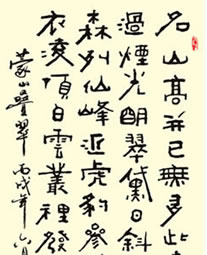 名山高并已無多此
過煙光朗翠黛日斜
森列仙峰近虎豹參
衣凌頂白雲叢裡發
蒙山疊翠 丙戌年六月